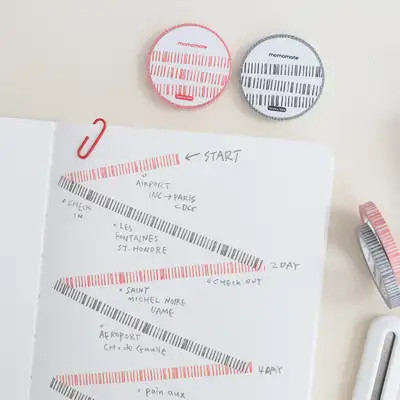 momamate
momamate
START
AIRPORT
INC → PARIS
CDG
CHECK
IN
LES
FONTAINES
ST. HONORE
2DAY
CHECK OUT
SAINT
MICHEL NOTRE
DAME
AEROPORT
CH. de Gaulle
4DAY
pain aux